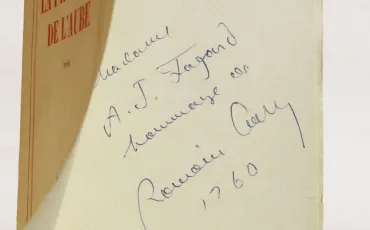 DE L'AUBE
Madame
A. J. Fagard
hommage de
Romain Gary
1960